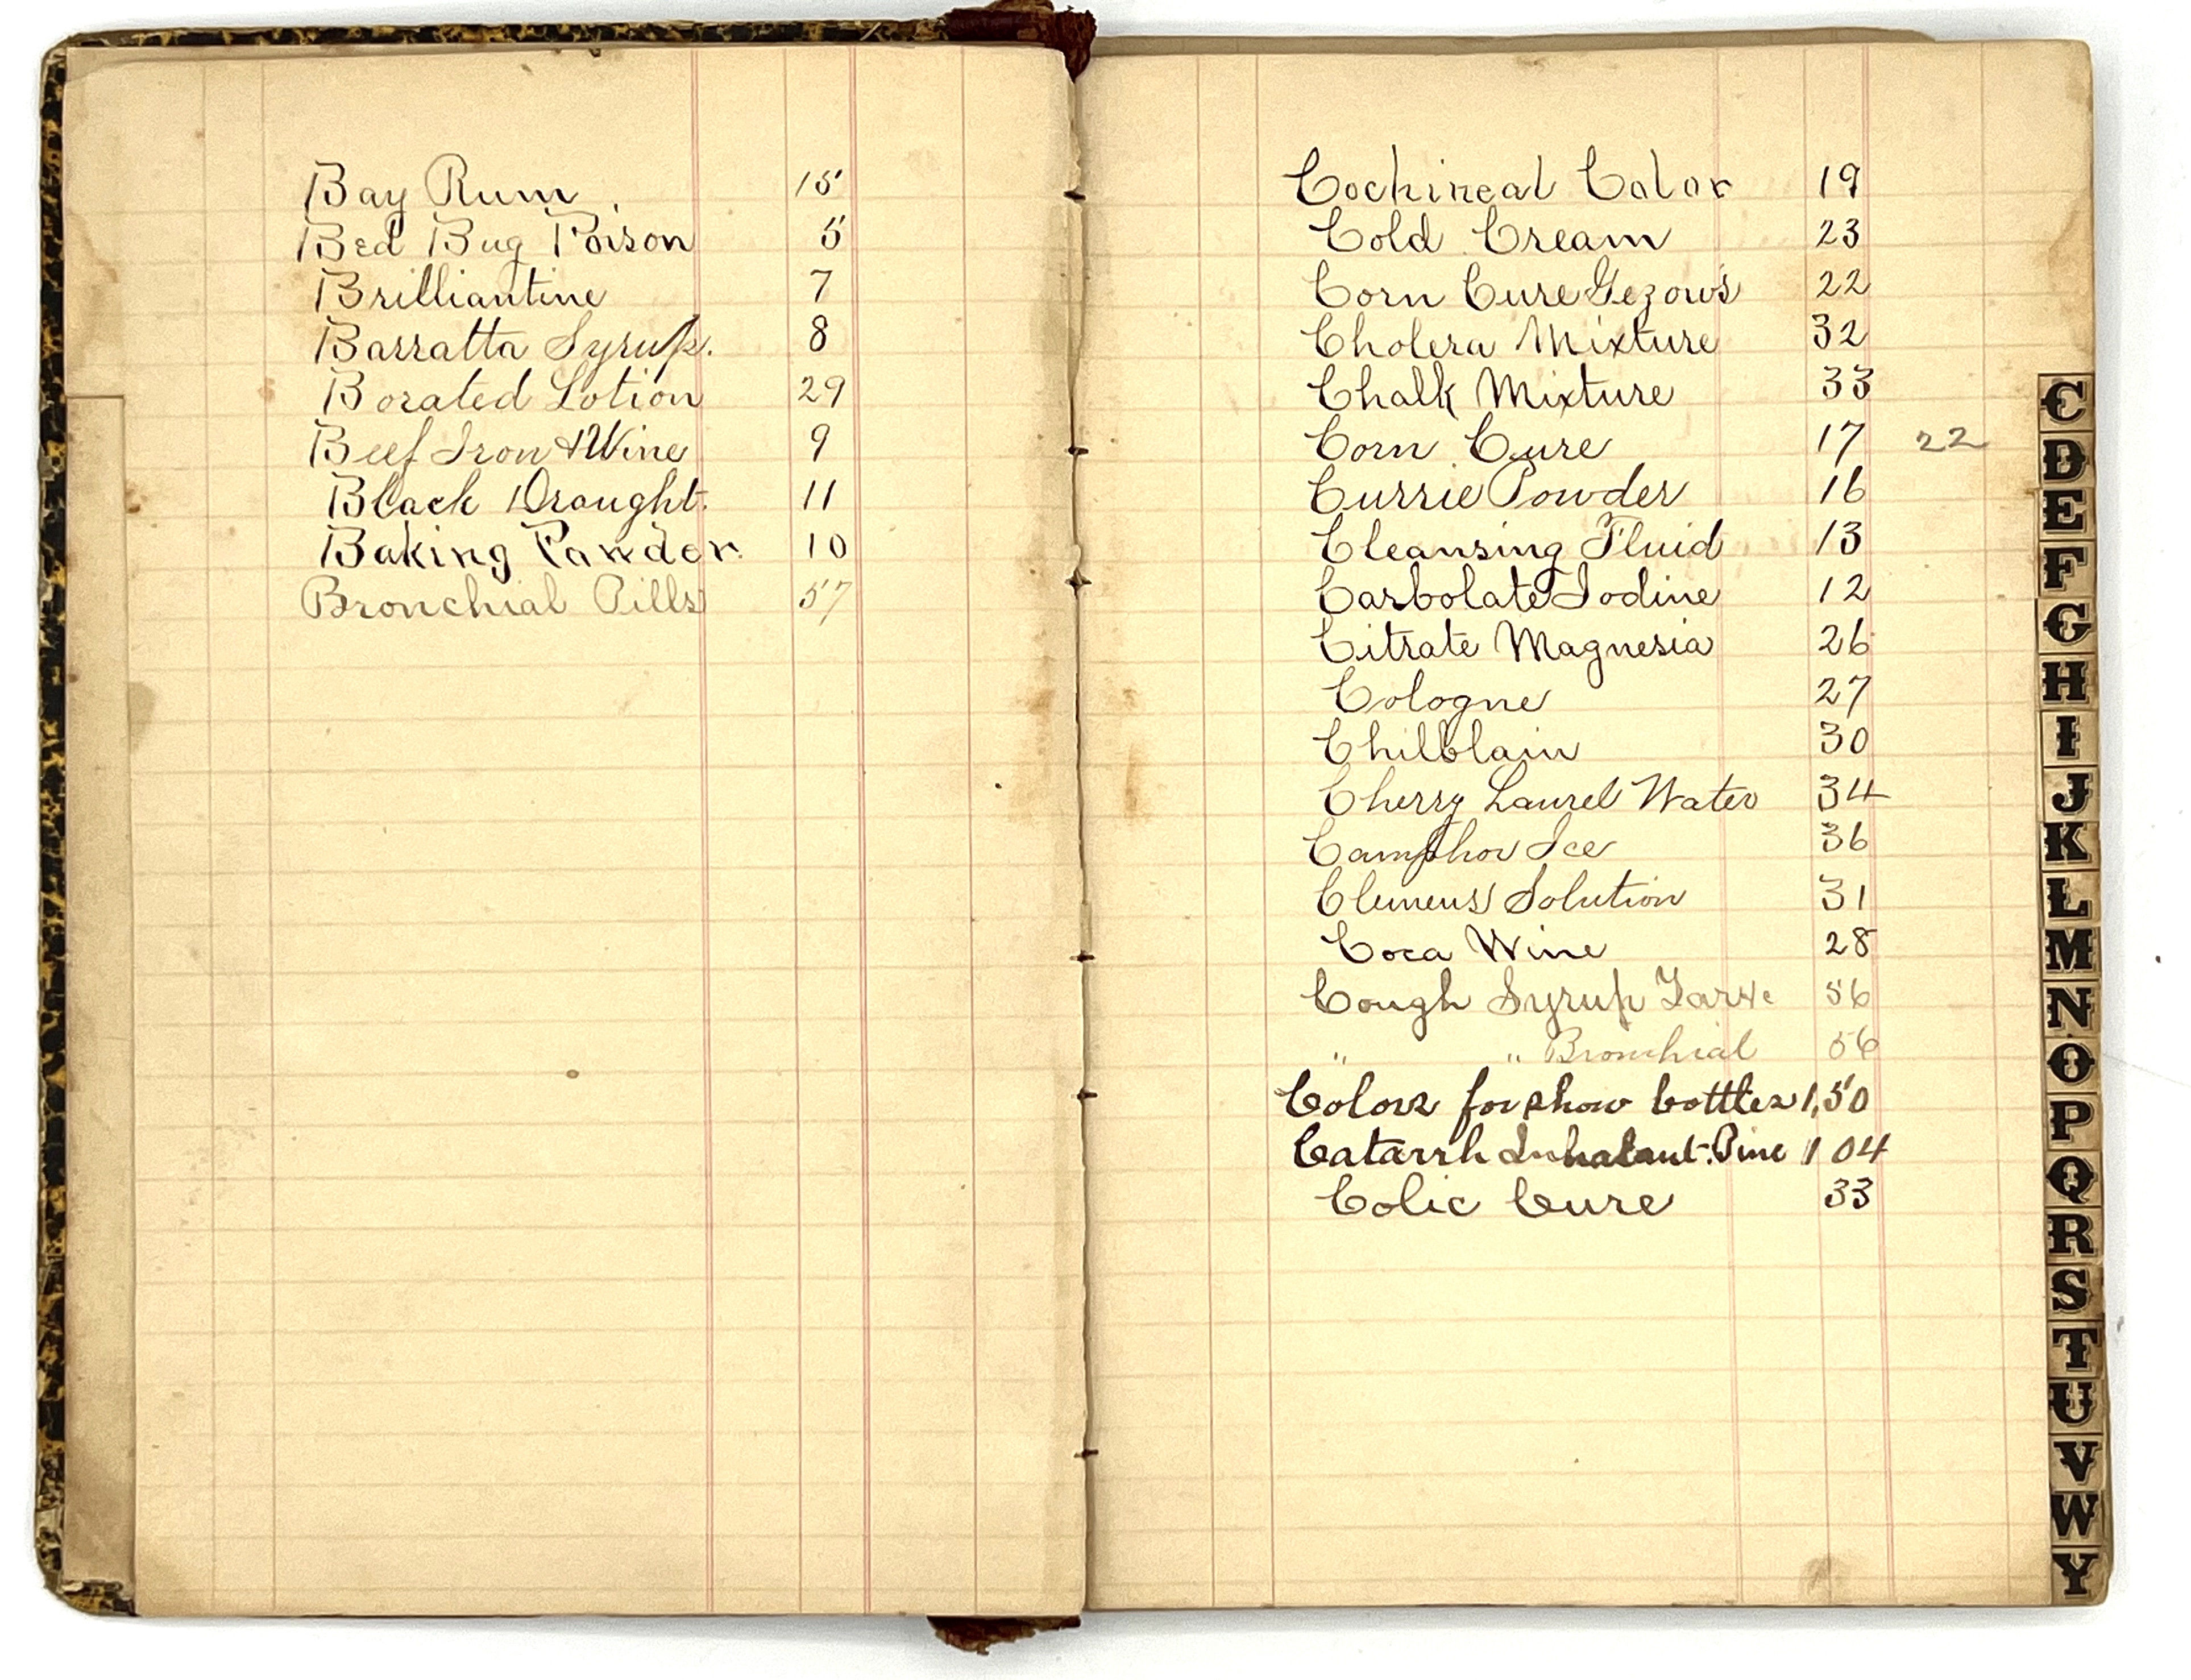 Bay Rum 15
Bed Bug Poison 5
Brilliantine 7
Barratta Syrup. 8
Borated Lotion 29
Beef Iron & Wine 9
Black Draught. 11
Baking Powder. 10
Bronchial Pills 57
Cochineal Color 19
Cold Cream 23
Corn Cure Gezow's 22
Cholera Mixture 32
Chalk Mixture 33
Corn Cure 17 22
Currie Powder 16
Cleansing Fluid 13
Carbolate Iodine 12
Citrate Magnesia 26
Cologne 27
Chilblain 30
Cherry Laurel Water 34
Camphor Ice 36
Clemens Solution 31
Coca Wine 28
Cough Syrup 56
" " Bronchial 56
Colors for show bottles 1,50
Catarrh Inhalant. Pine 104
Colic Cure 33
C
D
E
F
G
H
I
J
K
L
M
N
O
P
Q
R
S
T
U
V
W
Y